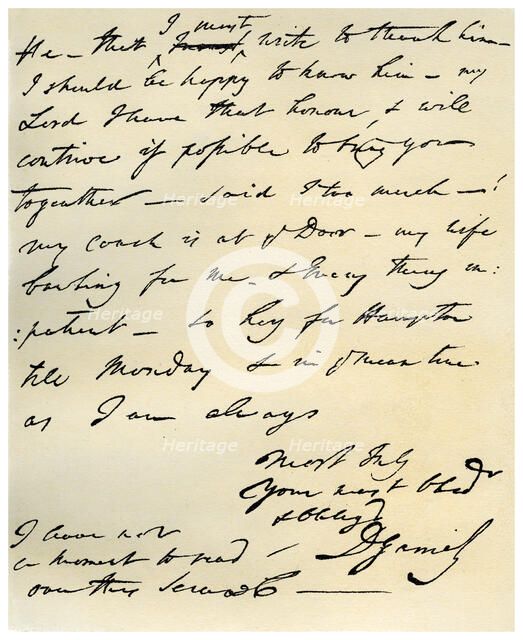 I must
He - that I must write to thank him -
I should be happy to know him - my
Lord I have that honour, & will
contrive if possible to bring you
together - said I too much - !
my coach is at ye Door - my wife
bawling for me - & Every thing im:
:patient - so hey for Hampton
till Monday & in ye mean time
as I am always
Most truly
Your most Obedt
& Obliged
D Garrick
I have not
a moment to read
over this Scrawl
Heritage
Heritage
Heritage
Heritage
Heritage
Heritage
Heritage
Heritage